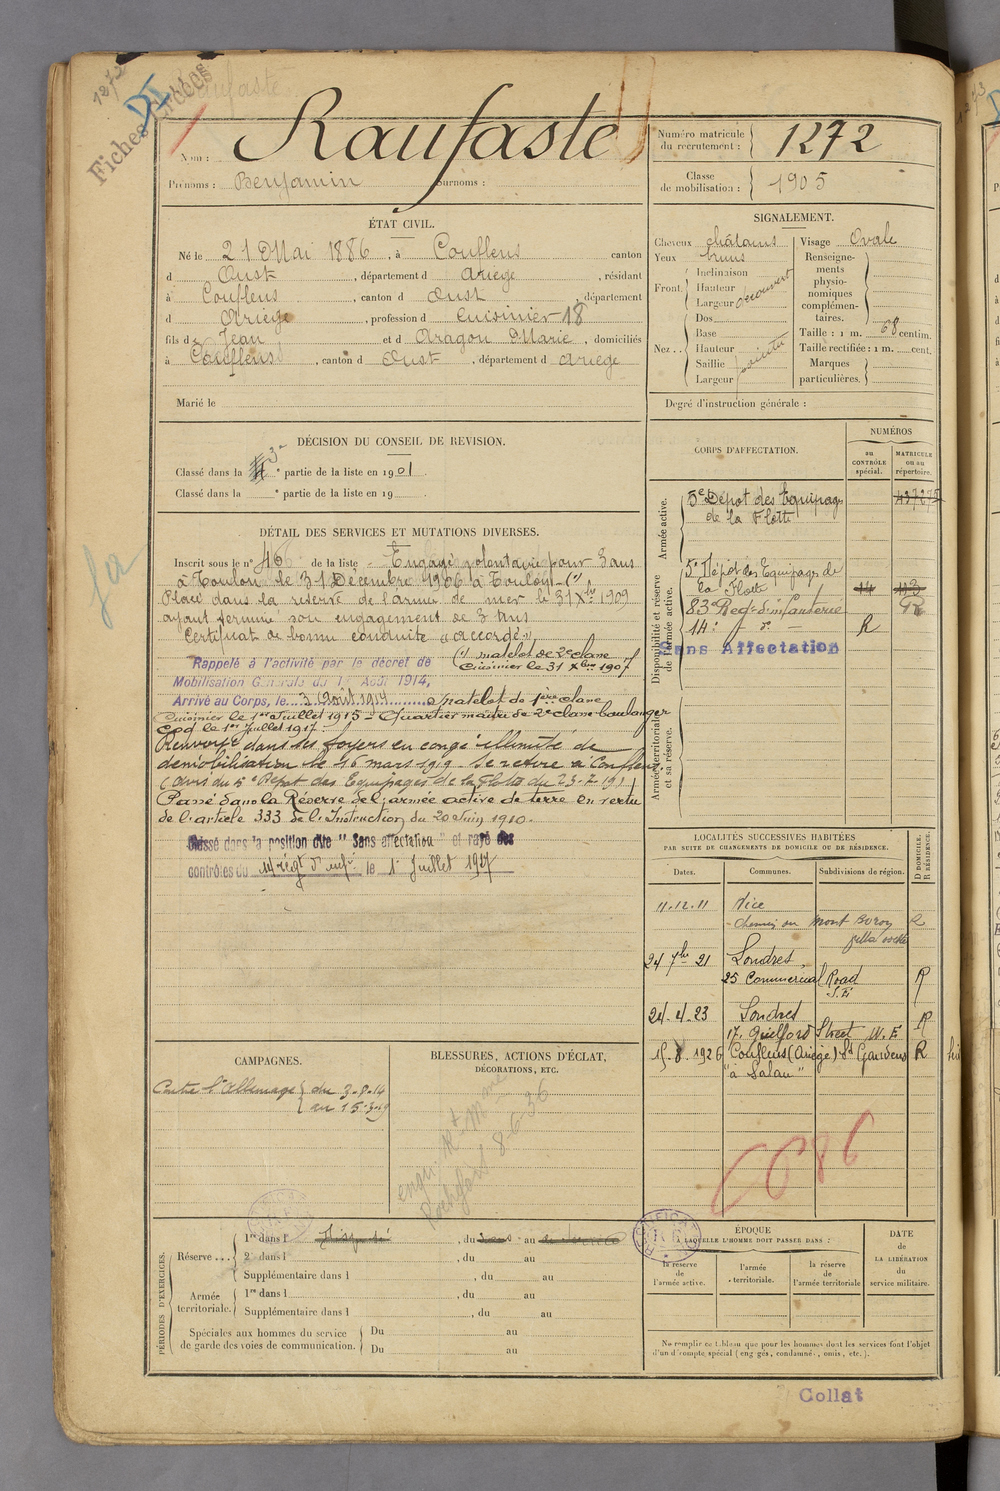 1272
DI
Fiches
Nom : Raufaste
Prénoms : Benjamin Surnoms :
Numéro matricule du recrutement : 1272
Classe de mobilisation : 1905
ÉTAT CIVIL.
Né le 21 Mai 1886, à Couflens canton
d Oust, département d Ariège, résidant
à Couflens, canton d Oust, département
d Ariège, profession d Cuisinier 18
fils de Jean et d Aragon Marie, domiciliés
à Couflens, canton d Oust, département d Ariège
Marié le
SIGNALEMENT.
Cheveux châtains
Yeux bruns
Front. Inclinaison
Hauteur
Largeur découvert
Nez .. Dos
Base
Hauteur
Saillie
Largeur
Visage Ovale
Renseignements physionomiques complémentaires.
Taille : 1 m. 68 centim.
Taille rectifiée : 1 m. cent.
Marques particulières.
Degré d'instruction générale :
DÉCISION DU CONSEIL DE REVISION.
Classé dans la 3e partie de la liste en 1901
Classé dans la e partie de la liste en 19
DÉTAIL DES SERVICES ET MUTATIONS DIVERSES.
Inscrit sous le n° 46 de la liste - Engagé volontaire pour 3 ans
à Toulon le 31 Décembre 1906 à Toulon (1)
Placé dans la réserve de l'armée de mer le 31 Xbre 1909
ayant terminé son engagement de 3 ans
Certificat de bonne conduite "accordé"
(1) matelot de 2e classe
Cuisinier le 31 Xbre 1907
Rappelé à l'activité par le décret de
Mobilisation Générale du 1er Août 1914,
Arrivé au Corps, le 3 Août 1914 Matelot de 1ère classe
Cuisinier le 1er Juillet 1915 - Quartier maître de 2e classe boulanger
coq le 1er Juillet 1917.
Renvoyé dans ses foyers en congé illimité de
démobilisation le 16 mars 1919 se retire à Couflens
(Avis du 5e Dépôt des Equipages de la Flotte du 23-7-19)
Passé dans la Réserve de l'armée active de terre en vertu
de l'article 333 de l'Instruction du 20 Juin 1910.
Classé dans la position dite "Sans affectation" et rayé des
contrôles du 14 régt d'infie le 1er Juillet 1927
CORPS D'AFFECTATION.
NUMÉROS
au CONTRÔLE spécial.
MATRICULE ou au répertoire.
Armée active.
5e Dépôt des Equipages
de la Flotte
Disponibilité et réserve de l'armée active.
5e Dépôt des Equipages de
la Flotte
83e Regt d'infanterie
14e d° R
Sans Affectation
Armée territoriale et sa réserve.
LOCALITÉS SUCCESSIVES HABITÉES
PAR SUITE DE CHANGEMENTS DE DOMICILE OU DE RÉSIDENCE.
Dates. Communes. Subdivisions de région. D DOMICILE. R RÉSIDENCE.
11.12.11 Nice
chemin du Mont Boron R
24 7bre 21 Londres
25 Commercial Road R
S.E
24.4.23 Londres R
17, Guilford Street W.E
15.8.1926 Couflens (Ariège) St Gaudens R
"à Salau"
6086
CAMPAGNES.
Contre l'Allemagne du 3-8-14
au 15-3-19
BLESSURES, ACTIONS D'ÉCLAT,
DÉCORATIONS, ETC.
Rochefort 8-6-36
PÉRIODES D'EXERCICES.
Réserve . . . 1re dans l , du au
2e dans l , du au
Supplémentaire dans l , du au
Armée territoriale. 1re dans l , du au
Supplémentaire dans l , du au
Spéciales aux hommes du service
de garde des voies de communication. Du au
Du au
ÉPOQUE
À LAQUELLE L'HOMME DOIT PASSER DANS :
la réserve de l'armée active.
l'armée territoriale.
la réserve de l'armée territoriale
DATE DE LA LIBÉRATION du service militaire.
Ne remplir ce tableau que pour les hommes dont les services font l'objet
d'un décompte spécial (engagés, condamnés, omis, etc.).
Collat